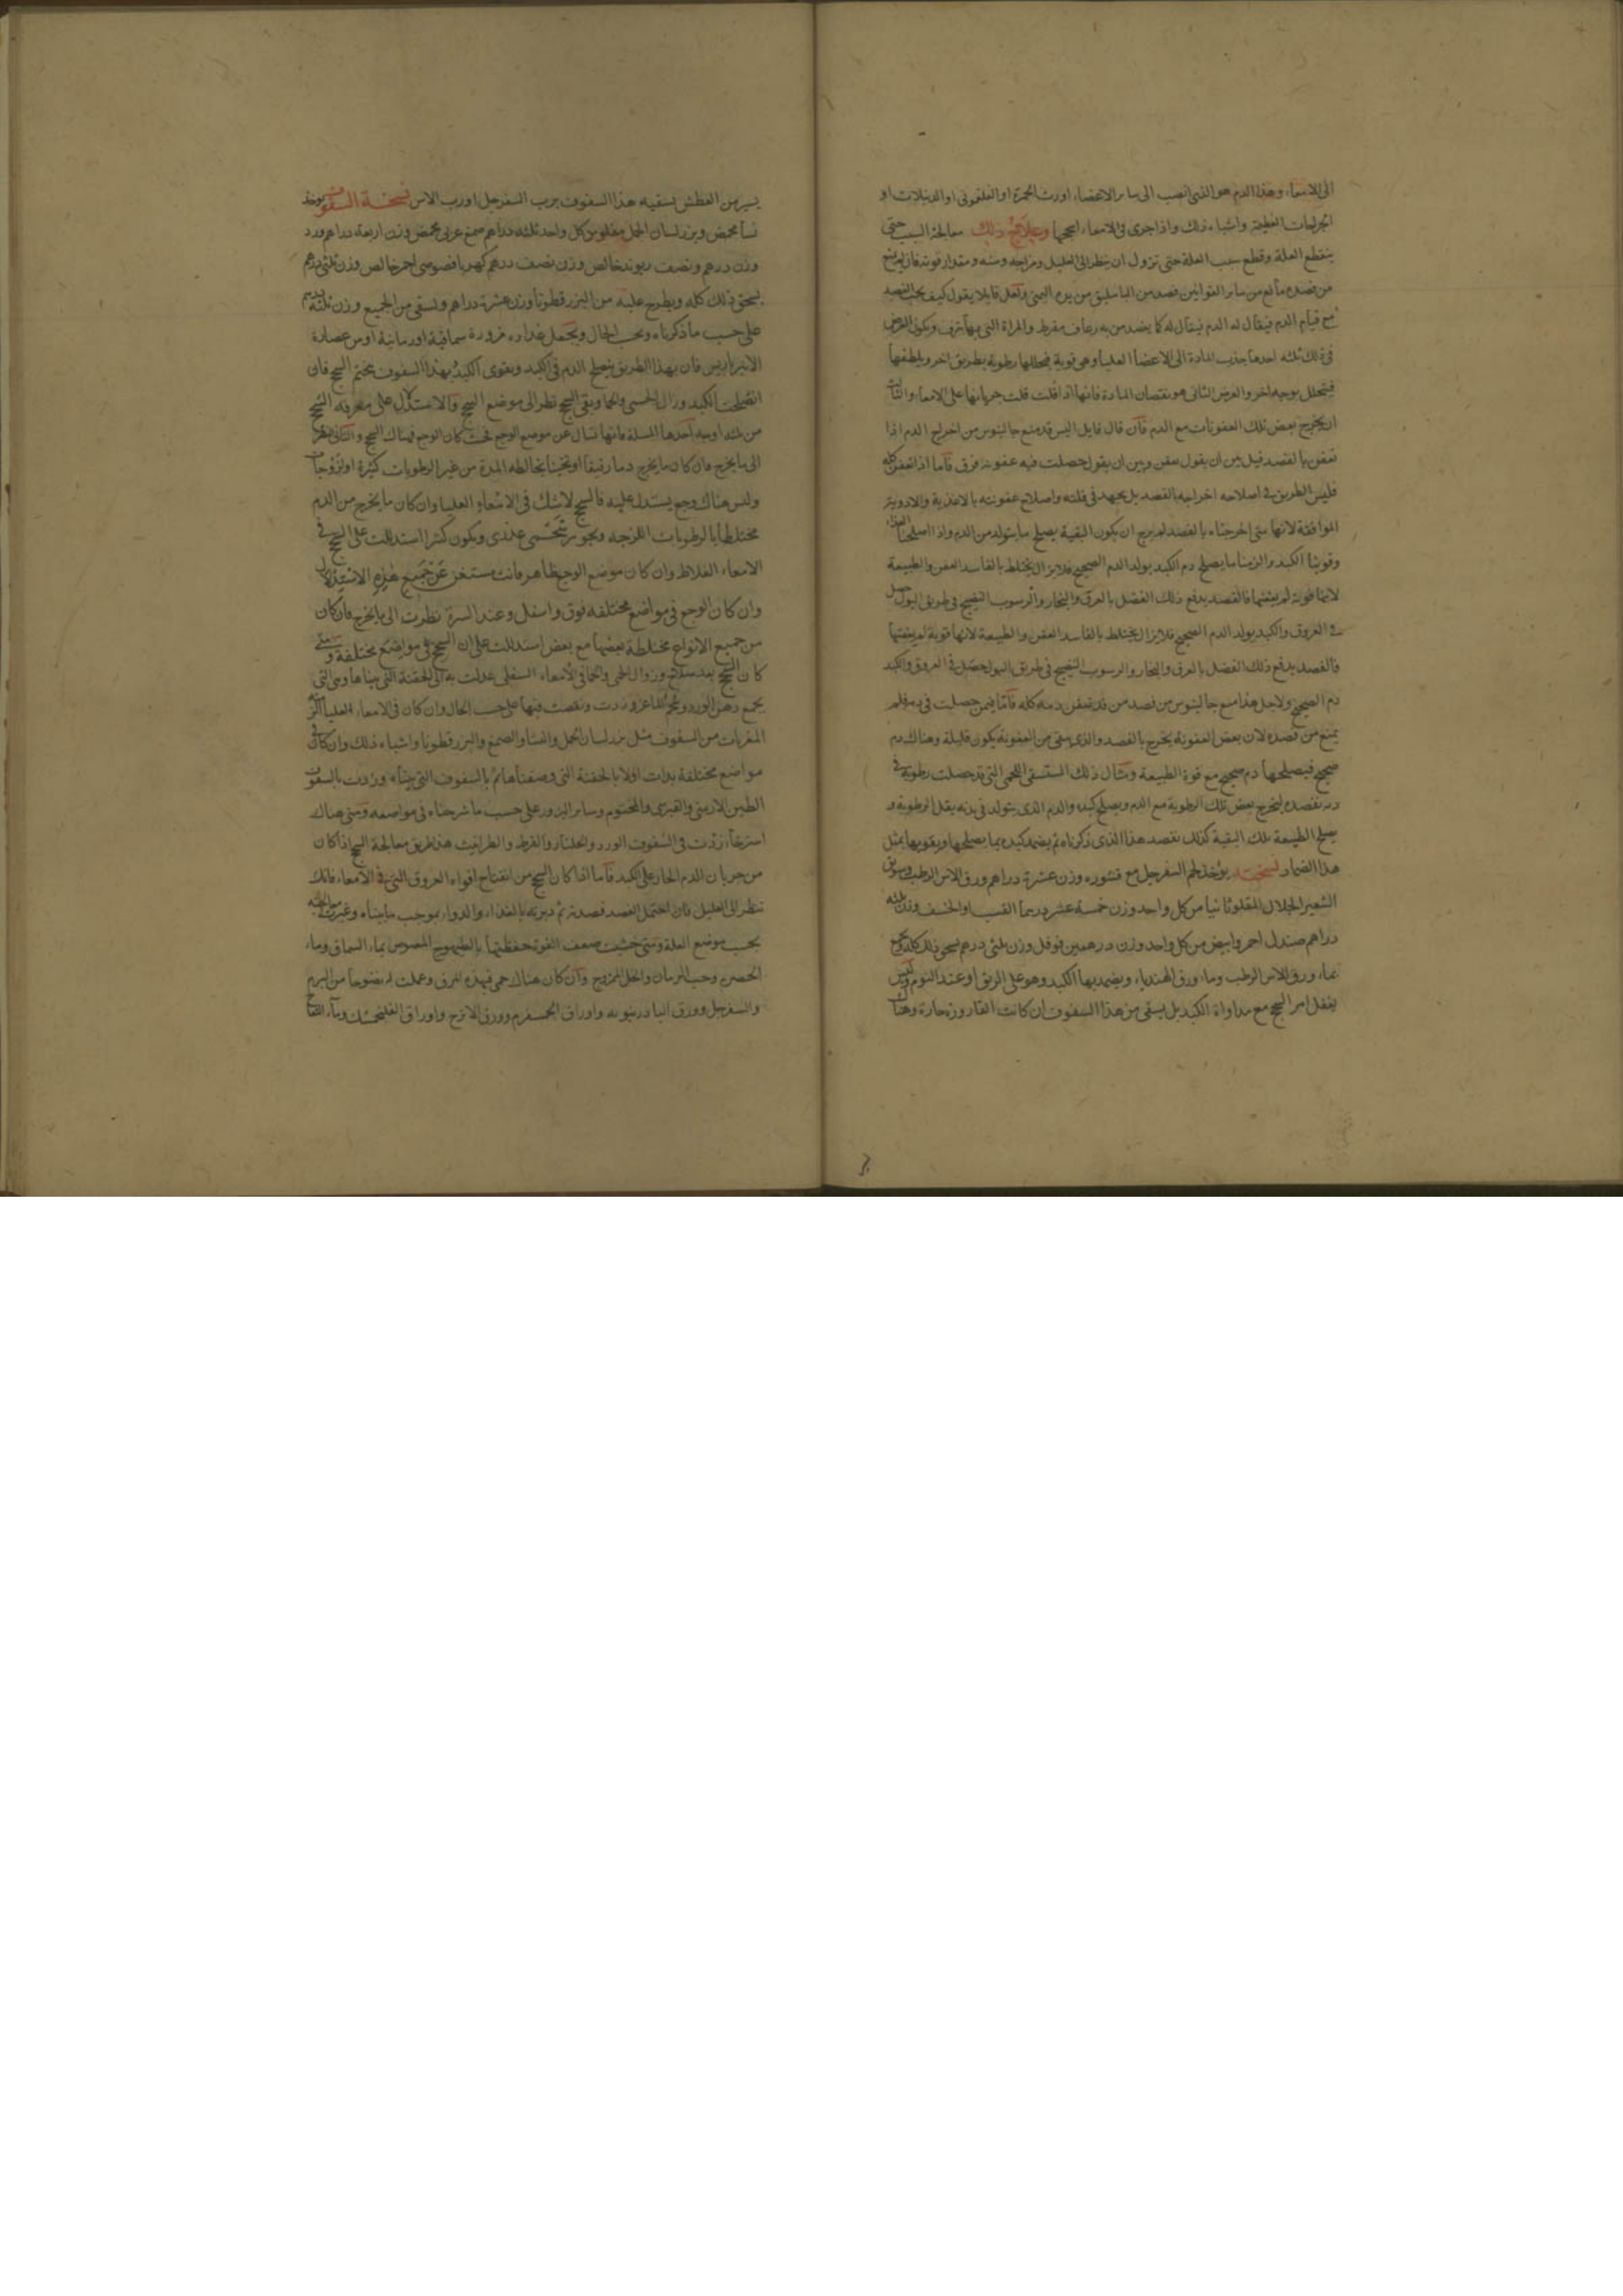 الى الامعاء وهذا الدم هو الذي انصب الى سائر الاعضاء اورث الحمرة او الفلغمونى او الدبيلات او
الجراحات العظيمة واشباه ذلك واذا جرى فى الامعاء اسحجها وعلاج ذلك معالجة السبب حتى
ينقطع العلة وقطع سبب العلة حتى تزول ان ينظر الى العليل ومزاجه وسنه ومقدار قوته فان لم يمنع
من فصده مانع من سائر القوانين فصد من الباسليق من يده اليمنى ولعل قايلا يقول كيف يجب الفصد
مع قيام الدم فيقال له كما يفصد من به رعاف مفرط والمراة التى بها نزف ويكون الغرض
فى ذلك ثلثه احدها جذب المادة الى الاعضا العليا وهى قوية فيحللها رطوبة بطريق اخر ويلطفها
فيتحلل بوجه اخر والغرض الثانى هو نقصان المادة فانها اذا قلت قلت جريانها على الامعاء والثالث
ان يخرج بعض تلك العفونات مع الدم فان قال قايل اليس قد منع جالينوس من اخراج الدم اذا
تعفن بالفصد قيل بين ان يقول عفن وبين ان يقول حصلت فيه عفونة فرق فاما اذا تعفن كله
فليس الطريق فى اصلاحه اخراجه بالفصد بل يجهد فى قلته واصلاح عفونته بالاغذية والادوية
الموافقة لانها متى اخرجناه بالفصد لم يرج ان يكون البقية يصلح ما يتولد من الدم واذا اصلحنا الغذاء
وقوينا الكبد والزمناها يصلح دم الكبد يولد الدم الصحيح فلا يزال يختلط بالفاسد العفن والطبيعة
لانها قوية لم يفنها فالفصد يدفع ذلك الفضل بالعرق والبخار والرسوب النضيج فى طريق البول حصل
فى العروق والكبد يولد الدم الصحيح فلا يزال يختلط بالفاسد العفن والطبيعة لانها قوية لم يفنها
فالفصد يدفع ذلك الفضل بالعرق والبخار والرسوب النضيج فى طريق البول حصل فى العروق والكبد
دم الصحيح ولاجل هذا منع جالينوس من فصد من قد تعفن دمه كله فاما فيمن حصلت فى دمه فلم
يمنع من فصده لان بعض العفونة يخرج بالفصد والذى يبقى من العفونة يكون قليلة وهناك دم
صحيح فيصلحها دم صحيح مع قوة الطبيعة ومثال ذلك المستسقى اللحمى التى قد حصلت رطوبة فى
دمه نفصده ليخرج بعض تلك الرطوبة مع الدم ويصلح كبده والدم الذى يتولد فى بدنه يقل الرطوبة و
يصلح الطبيعة تلك البقية كذلك نفصد هذا الذى ذكرناه ثم يضمد كبده بما يصلحها ويقويها بمثل
هذا الضماد نسخته يؤخذ لحم السفرجل مع قشوره وزن عشرة دراهم ورق الاس الرطب وسويق
الشعير المقلو من كل واحد وزن خمسة عشر درهما القسب او الخشف وزن ثلثه
دراهم صندل احمر وابيض من كل واحد وزن درهمين فوفل وزن ثلثى درهم يسحق ذلك كله ويجمع
بماء ورق الاس الرطب وماء ورق الهندباء ويضمد بها الكبد وهو على الريق او عند النوم وليس
يغفل امر السحج مع مداواة الكبد بل يسقى من هذا السفوف ان كانت القارورة حارة وهناك
يسير من العطش نسقيه هذا السفوف برب السفرجل او رب الاس نسخة السفوف يوخذ
نشا محمص وبزر لسان الحمل مقلو من كل واحد ثلثه دراهم صمغ عربى محمص وزن اربعة دراهم ورد
وزن درهم ونصف ريوند خالص وزن نصف درهم كهربا فصوصى احمر خالص وزن ثلثى درهم
يسحق ذلك كله ويطرح عليه من البزر قطونا وزن عشرة دراهم ويسقى من الجميع وزن ثلثه دراهم
على حسب ما ذكرناه وبحسب الحال ويجعل غذاءه مزورة سماقية او رمانية او من عصارة
الانبرباريس فان بهذا الطريق يصلح الدم فى الكبد ويقوى الكبد وبهذا السفوف يختم السحج فان
انصلحت الكبد وزال الحمى وبقى السحج نظر الى موضع السحج والاستدلال على معرفه السحج
من ثلثه اوجه احدها المسلة فانها تسال عن موضع الوجع فحيث كان الوجع فهناك السحج والثانى ينظر
الى ما يخرج فان كان ما يخرج دما رقيقا او ثخينا يخالطه المدة من غير الرطوبات كثيرة او لزوجات
وليس هناك وجع يستدل عليه فالسحج لا شك فى الامعاء العليا وان كان ما يخرج من الدم
مختلطا بالرطوبات اللزجه ويكون كثيرا استدللت على السحج فى
الامعاء الغلاظ وان كان موضع الوجع ظاهر فانت مستغن عن جميع هذه الاستدلال
وان كان الوجع فى مواضع مختلفه فوق واسفل وعند السرة نظرت الى ما يخرج فان كان
من جميع الانواع مختلطة بعضها مع بعض استدللت على ان السحج فى مواضع مختلفة ومتى
كان السحج بعد صلاح وزوال الحمى وانما فى الامعاء السفلى عدلت به الى الحقنة التى بيناها وهى التى
يجمع دهن الورد وشحم الماعز وزدت ونقصت فيها على حسب الحال وان كان فى الامعاء العليا
المغريات من السفوف مثل بزر لسان الحمل والنشا والصمغ والبزر قطونا واشباه ذلك وان كان فى
مواضع مختلفة بدات اولا بالحقنة التى وصفناها ثم بالسفوف التى بيناه وزدت بالسفوف
الطين الارمنى والقبرسى والمختوم وسائر البزور على حسب ما شرحناه فى مواضعه ومتى هناك
استرخاء زدت فى السفوف الورد والجلنار والقرظ والطراثيث هذا طريق معالجة السحج اذا كان
من جريان الدم الحار على الكبد فاما اذا كان السحج من انفتاح افواه العروق التى فى الامعاء فانك
تنظر الى العليل فان احتمل الفصد فصدته ثم دبرته بالغذاء والدواء بموجب ما بيناه وغيرت معالجته
بحسب موضع العلة ومتى خشيت ضعف القوة حفظتها بالطيهوج المصوص بماء السماق وماء
الحصرم وحب الرمان والخل الممزوج وان كان هناك حمى فهذه المرق وعملت له نضوحا من البرم
والسفرجل وورق البادرنبويه واوراق الجمسفرم وورق الاترج واوراق الفلنجمشك وماء التفاح